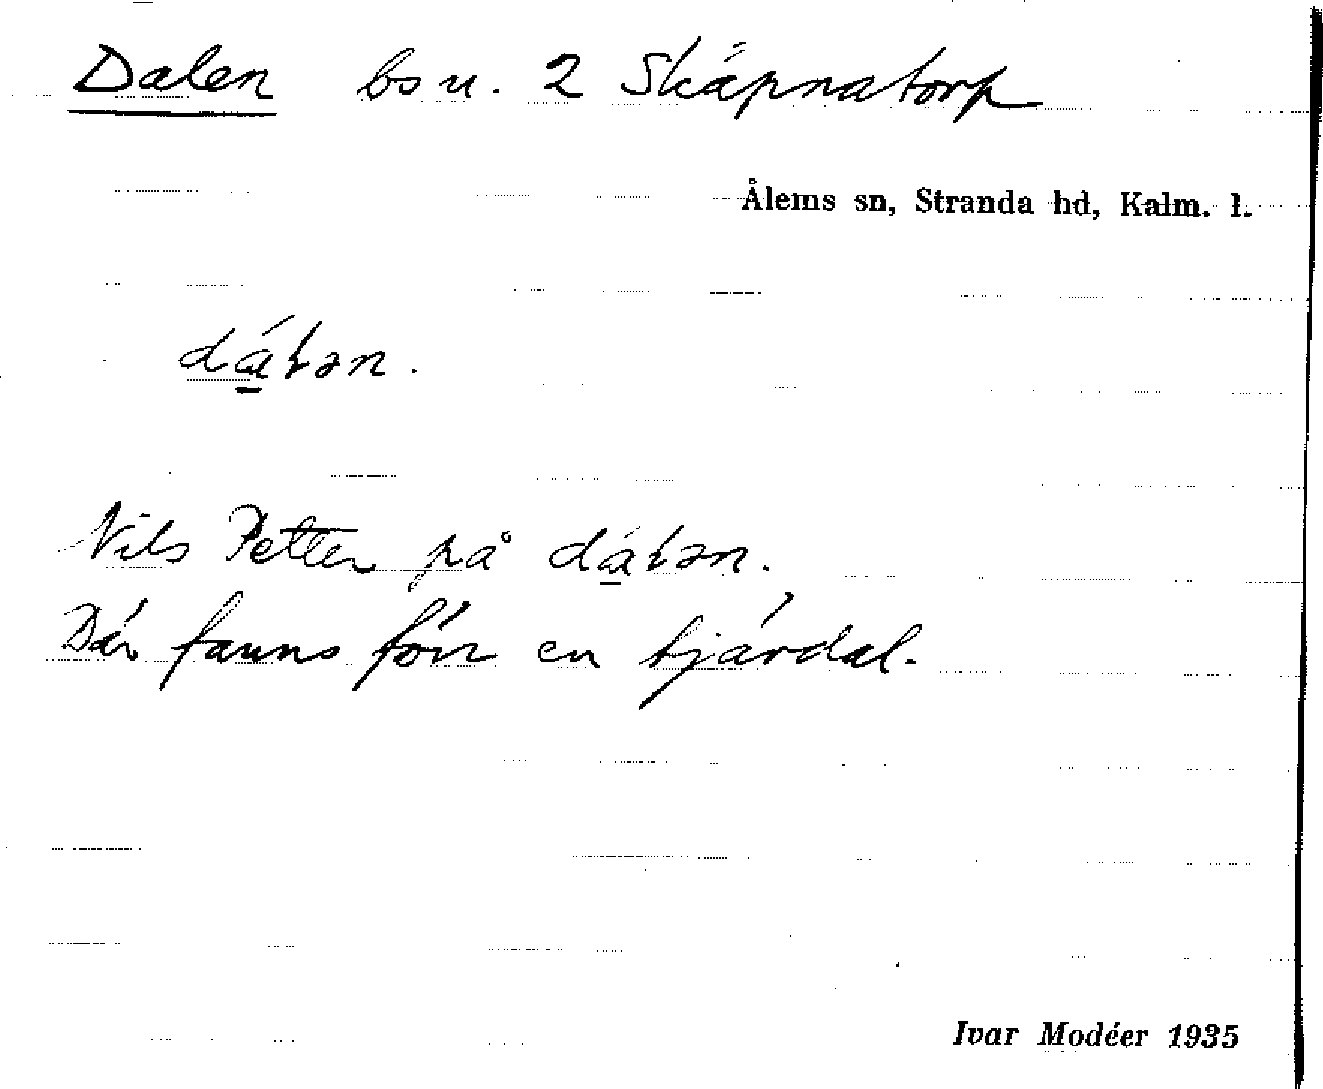 Dalen bs u. 2 Skäpnatorp
Ålems sn, Stranda hd, Kalm. l.
dálən.
Nils Petter på dálən.
Där fanns förr en tjärdal.
Ivar Modéer 1935